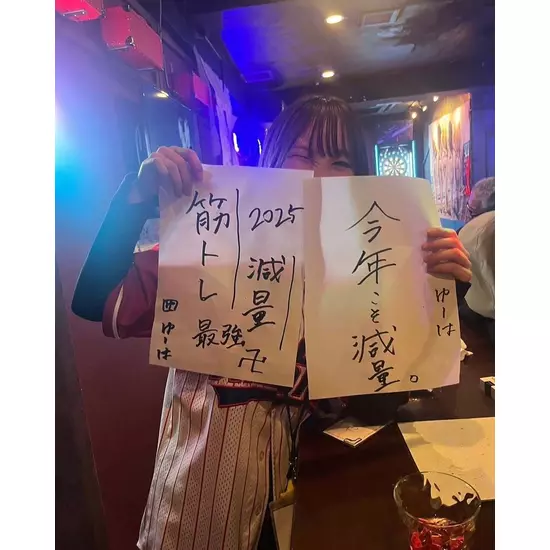 今年こそ減量。
ゆーは
2025 減量
筋トレ 最強卍
ゆーは